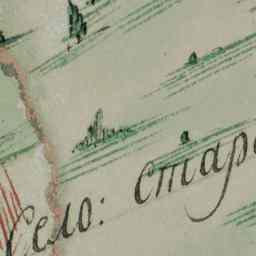 Село: стар